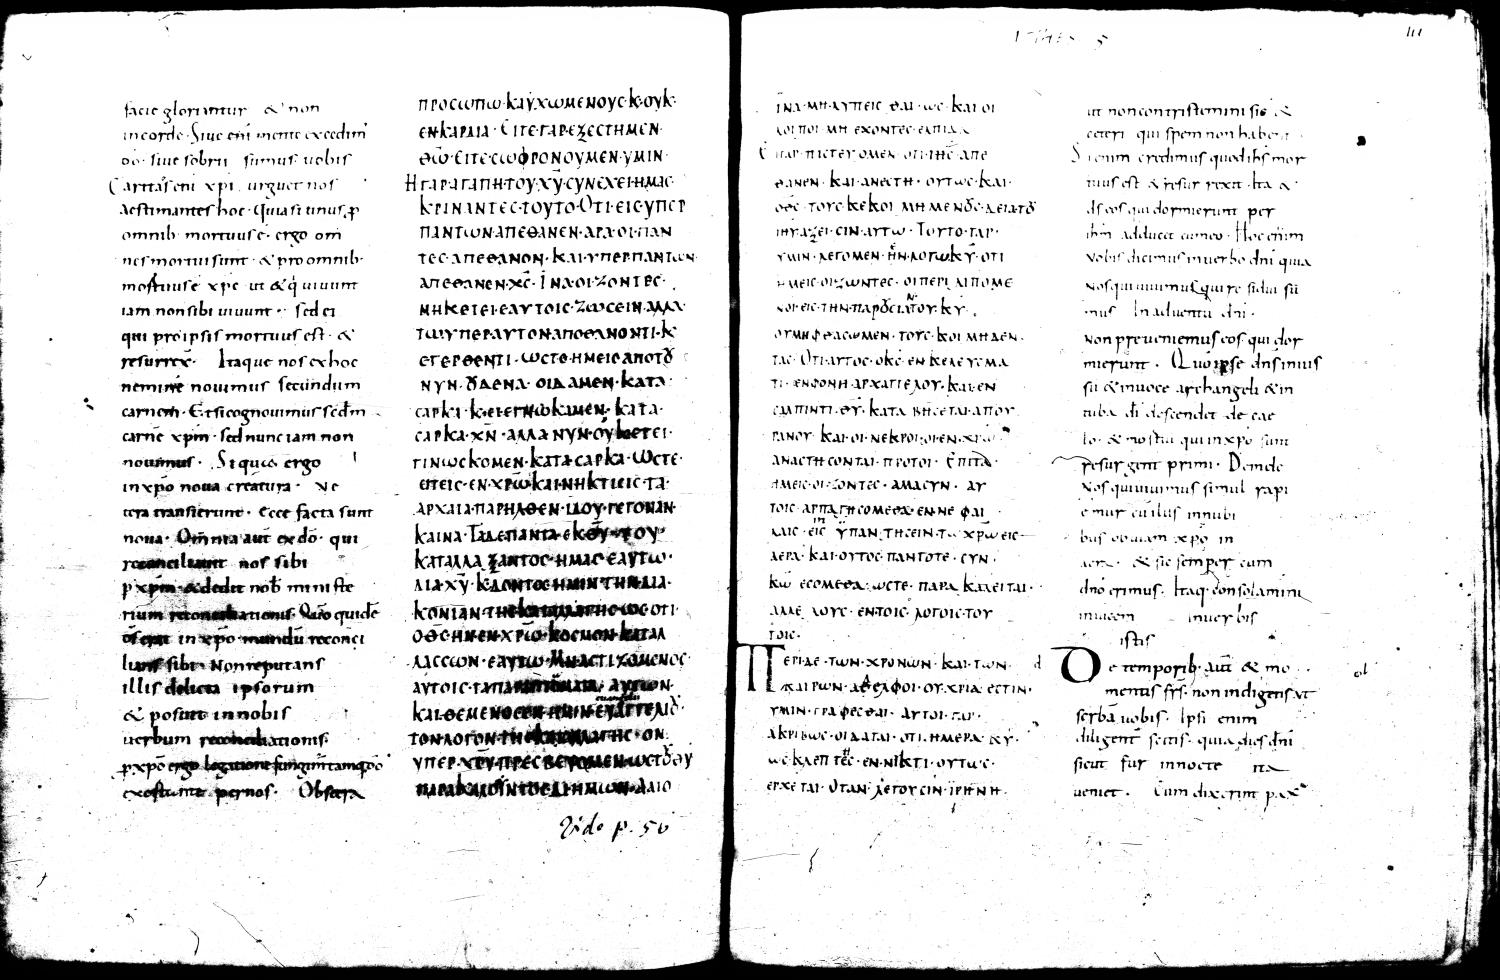 facie gloriantur & non
in corde. Siue eni mente excedim
do. siue sobrii sumus. uobis
Caritas eni xpi urguet nos
Aestimantes hoc. Quia si unus p
omnib mortuus e. ergo om
nes mortui sunt. & pro omnib.
mortuus e xpc. ut & q uiuunt
iam non sibi uiuunt. sed ei
qui pro ipsis mortuus est. &
resurrex. Itaque nos ex hoc
nemine nouimus secundum
carnem. Et si cognouimus sedm
carne xpm. sed nunc iam non
nouimus. Si qua ergo
in xpo noua creatura. Ve
tera transierunt. Ecce facta sunt
noua. Omnia aut ex do. qui
reconciliauit nos sibi
p xpm. & dedit nob ministe
rium reconciliationis. Quo quide
in xpo mundu reconci
sibi. Non reputans
illis delicta ipsorum
& posuit in nobis
uerbum reconciliationis.
p xpo ergo legatione fungimur tamq do
exortante per nos. Obsecra
ΠΡΟCΩΠΩ·ΚΑΥΧΩΜΕΝΟΥC·Κ·ΟΥΚ·
ΕΝ·ΚΑΡΔΙΑ· ΕΙΤΕ·ΓΑΡ·ΕΞΕCΤΗΜΕΝ·
ΘΩ·ΕΙΤΕ·CΩΦΡΟΝΟΥΜΕΝ·ΥΜΙΝ·
Η ΓΑΡ·ΑΓΑΠΗ·ΤΟΥ·ΧΥ·CΥΝΕΧΕΙ·ΗΜΑC·
ΚΡΙΝΑΝΤΕC·ΤΟΥΤΟ·ΟΤΙ·ΕΙC·ΥΠΕΡ
ΠΑΝΤΩΝ·ΑΠΕΘΑΝΕΝ·ΑΡΑ·ΟΙ·ΠΑΝ
ΤΕC·ΑΠΕΘΑΝΟΝ·ΚΑΙ·ΥΠΕΡ·ΠΑΝΤΩΝ·
ΑΠΕΘΑΝΕΝ·ΧC· ΙΝΑ·ΟΙ·ΖΟΝΤΕC·
ΜΗΚΕΤΕΙ·ΕΑΥΤΟΙC·ΖΩCΕΙΝ·ΑΛΛΑ
ΤΩ·ΥΠΕΡ·ΑΥΤΟΝ·ΑΠΟΘΑΝΟΝΤΙ·Κ
ΕΓΕΡΘΕΝΤΙ·ΩCΤΕ·ΗΜΕΙC·ΑΠΟ·ΤΟΥ
ΝΥΝ·ΟΥΔΕΝΑ·ΟΙΔΑΜΕΝ·ΚΑΤΑ·
CΑΡΚΑ·Κ·ΕΙ·ΕΓΝΩΚΑΜΕΝ·ΚΑΤΑ·
CΑΡΚΑ·ΧΝ·ΑΛΛΑ·ΝΥΝ·ΟΥΚΕΤΕΙ·
ΓΙΝΩCΚΟΜΕΝ·ΚΑΤΑ·CΑΡΚΑ·ΩCΤΕ·
ΕΙΤΕΙC·ΕΝ·ΧΡΩ·ΚΑΙΝΗ·ΚΤΙCΙC·ΤΑ·
ΑΡΧΑΙΑ·ΠΑΡΗΛΘΕΝ·ΙΔΟΥ·ΓΕΓΟΝΑΝ·
ΚΑΙΝΑ·ΤΑ·ΔΕ·ΠΑΝΤΑ·ΕΚ·ΘΥ·ΤΟΥ
ΚΑΤΑΛΛΑΞΑΝΤΟC·ΗΜΑC·ΕΑΥΤΩ·
ΔΙΑ·ΧΥ·Κ·ΔΟΝΤΟC·ΗΜΙΝ·ΤΗΝ·ΔΙΑ·
ΚΟΝΙΑΝ·ΤΗC·ΚΑΤΑΛΛΑΓΗC·ΩC·ΟΤΙ·
ΟΘC·ΗΝ·ΕΝ·ΧΡΩ·ΚΟCΜΟΝ·ΚΑΤΑΛ
ΛΑCCΩΝ·ΕΑΥΤΩ·ΜΗ·ΛΟΓΙΖΟΜΕΝΟC·
ΑΥΤΟΙC·ΤΑ·ΠΑΡΑΠΤΩΜΑΤΑ·ΑΥΤΩΝ·
ΚΑΙ·ΘΕΜΕΝΟC·ΕΝ·ΗΜΙΝ·ΕΥΑΓΓΕΛΙΟΥ·
ΤΟΝ·ΛΟΓΟΝ·ΤΗC·ΚΑΤΑΛΛΑΓΗC·ΟΝ·
ΥΠΕΡ·ΧΡΥ·ΠΡΕCΒΕΥΟΜΕΝ·ΩC·ΤΟΥ·ΘΥ
ΠΑΡΑΚΑΛΟΥΝΤΟC·ΔΙ·ΗΜΩΝ·ΔΑΙΟ
Vide p. 56
111
ΙΝΑ·ΜΗ·ΛΥΠΕΙCΘΑΙ·ΩC·ΚΑΙ ΟΙ
ΛΟΙΠΟΙ·ΜΗ ΕΧΟΝΤΕC·ΕΛΠΙΔΑ
ΕΙ ΓΑΡ·ΠΙCΤΕΥΟΜΕΝ·ΟΤΙ·ΙΗC·ΑΠΕ
ΘΑΝΕΝ·ΚΑΙ·ΑΝΕCΤΗ·ΟΥΤΩC·ΚΑΙ·
ΟΘC·ΤΟΥC·ΚΕΚΟΙΜΗΜΕΝΟΥC·ΔΕΙΑ·ΤΟΥ
ΙΗΥ·ΑΞΕΙ·CΙΝ·ΑΥΤΩ·ΤΟΥΤΟ·ΓΑΡ·
ΥΜΙΝ·ΛΕΓΟΜΕΝ·ΕΝ·ΛΟΓΩ·ΚΥ·ΟΤΙ
ΗΜΕΙC·ΟΙ·ΖΩΝΤΕC·ΟΙ·ΠΕΡΙΛΙΠΟΜΕ
ΝΟΙ·ΕΙC·ΤΗΝ·ΠΑΡΟΥCΙΑΝ·ΤΟΥ·ΚΥ·
ΟΥ·ΜΗ·ΦΘΑCΩΜΕΝ·ΤΟΥC·ΚΟΙΜΗΘΕΝ·
ΤΑC·ΟΤΙ·ΑΥΤΟC·ΟΚC·ΕΝ·ΚΕΛΕΥCΜΑ
ΤΙ·ΕΝ·ΦΟΝΗ·ΑΡΧΑΓΓΕΛΟΥ·ΚΑΙ·ΕΝ
CΑΛΠΙΝΓΙ·ΘΥ·ΚΑΤΑΒΗCΕΤΑΙ·ΑΠ·ΟΥ·
ΡΑΝΟΥ·ΚΑΙ·ΟΙ·ΝΕΚΡΟΙ·ΟΙ·ΕΝ·ΧΡΩ
ΑΝΑCΤΗCΟΝΤΑΙ·ΠΡΟΤΟΙ·ΕΠΙΤΑ·
ΗΜΕΙC·ΟΙ·ΖΟΝΤΕC·ΑΜΑ CΥΝ·ΑΥ
ΤΟΙC·ΑΡΠΑΓΗCΟΜΕΘΑ·ΕΝ·ΝΕΦΑΙ
ΛΑΙC·ΕΙC ΥΠΑΝΤΗCΕΙΝ·ΤΩ·ΧΡΩ·ΕΙC
ΑΕΡΑ·ΚΑΙ·ΟΥΤΟC·ΠΑΝΤΟΤΕ·CΥΝ·
ΚΩ ΕCΟΜΕΘΑ·ΩCΤΕ·ΠΑΡΑΚΑΛΕΙΤΑΙ·
ΑΛΛΕΛΟΥC·ΕΝ·ΤΟΙC·ΛΟΓΟΙC·ΤΟΥ
ΤΟΙC·
ΠΕΡΙ·ΔΕ·ΤΩΝ·ΧΡΟΝΩΝ·ΚΑΙ·ΤΩΝ·
ΚΑΙΡΩΝ·ΑΔΕΛΦΟΙ·ΟΥ·ΧΡΙΑ·ΕCΤΙΝ·
ΥΜΙΝ·ΓΡΑΦΕCΘΑΙ·ΑΥΤΟΙ·ΓΑΡ·
ΑΚΡΙΒΩC·ΟΙΔΑΤΑΙ·ΟΤΙ·ΗΜΕΡΑ·ΚΥ·
ΩC·ΚΛΕΠΤΗC·ΕΝ·ΝΙΚΤΙ·ΟΥΤΩC·
ΕΡΧΕΤΑΙ·ΟΤΑΝ·ΛΕΓΟΥCΙΝ·ΙΡΗΝΗ·
ut non contristemini sic &
ceteri qui spem non habent
Si enim credimus quod ihs mor
tuus est & resurrexit. Ita &
ds eos qui dormierunt per
ihm adducet cum eo. Hoc enim
uobis dicimus in uerbo dni quia
nos qui uiuimus qui residui su
mus In aduentu dni.
non preueniemus eos qui dor
mierunt. Quo ipse dns in ius
su & in uoce archangeli & in
tuba di descendet de cae
lo. & mortui qui in xpo sunt
resurgent primi. Deinde
nos qui uiuimus simul rapi
emur cu illis in nubi
bus obuiam xpo in
aera & sic semper cum
dno erimus. Itaq consolamini
inuicem in uerbis
istis
De temporib. aut & mo
mentis frs. non indigetis ut
scriba uobis. Ipsi enim
diligent scitis. quia dies dni
sicut fur in nocte ita
ueniet. Cum dixerint pax